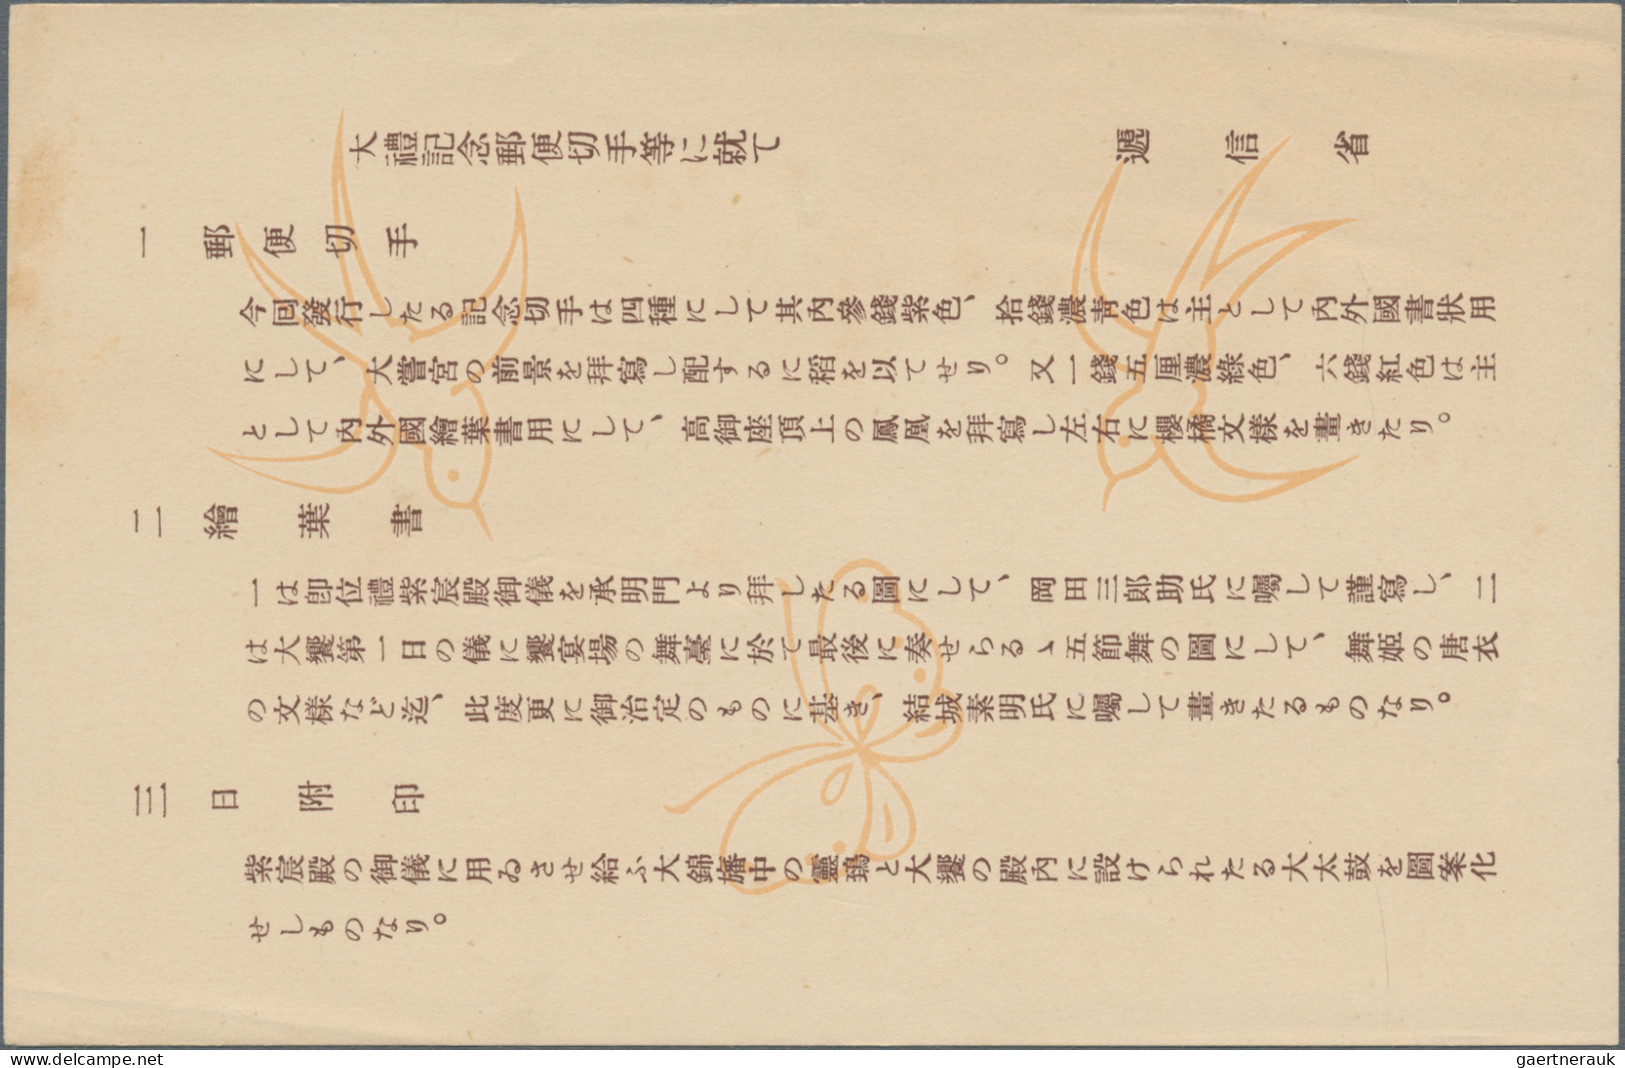 大禮記念郵便切手等に就て
遞信省
一 郵便切手
今囘發行したる記念切手は四種にして其內參錢紫色、拾錢濃靑色は主として內外國書狀用
にして、大嘗宮の前景を拜寫し配するに稻を以てせり。又一錢五厘濃綠色、六錢紅色は主
として內外國繪葉書用にして、高御座頂上の鳳凰を拜寫し左右に櫻橘文樣を畫きたり。
二 繪葉書
一は卽位禮紫宸殿御儀を承明門より拜したる圖にして、岡田三郞助氏に囑して謹寫し、二
は大饗第一日の儀に饗宴場の舞臺に於て最後に奏せらるゝ五節舞の圖にして、舞姬の唐衣
の文樣など迄、此度更に御治定のものに基き、結城素明氏に囑して畫きたるものなり。
三 日附印
紫宸殿の御儀に用ゐさせ給ふ大錦旛中の靈鵄と大饗の殿內に設けられたる大太鼓を圖案化
せしものなり。
www.delcampe.net
gaertnerauk